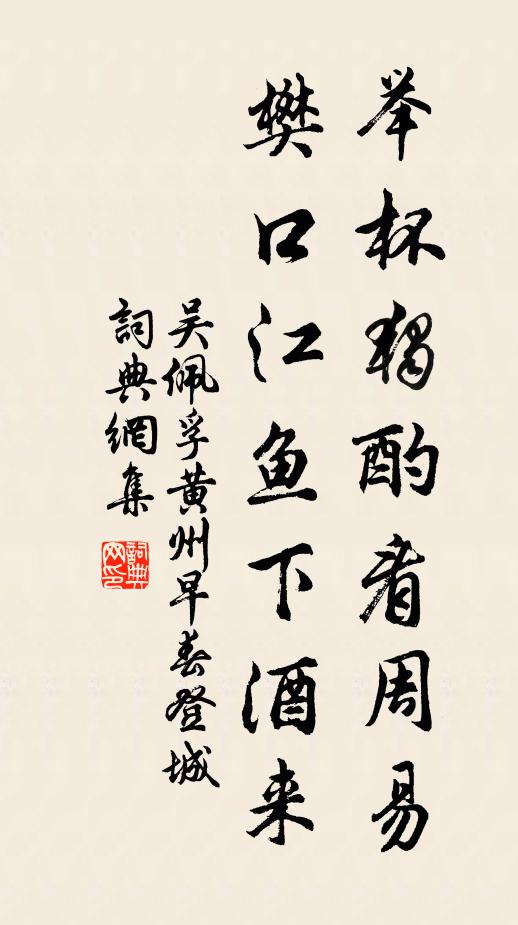 举杯独酌看周易
樊口江鱼下酒来
吴佩孚黄州早春登城
詞典網集
詞典
网